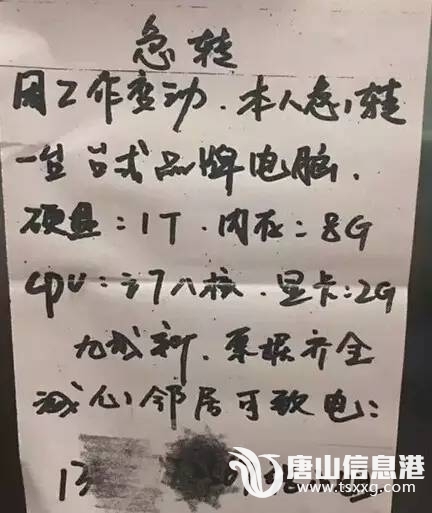 急转
因工作变动.本人急转
一台台式品牌电脑.
硬盘:1T.内存:8G
CPU:i7八核.显卡:2G
九成新.票据齐全
诚心邻居可致电:
13
唐山信息港
www.tsxxg.com